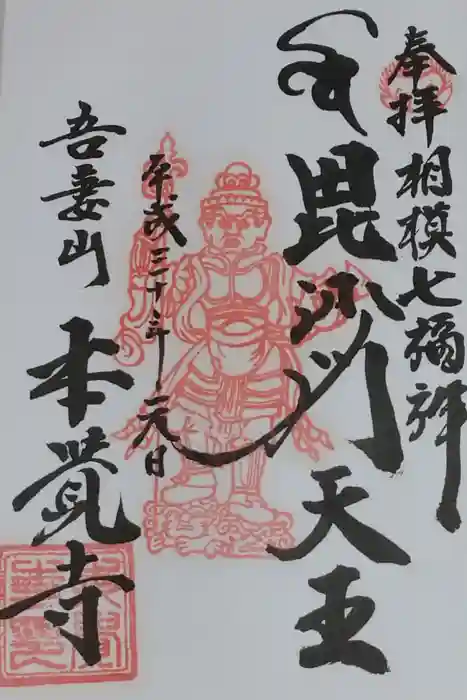 奉拝
相模七福神
毘沙門天王
平成三十年一元日
吾妻山
本覺寺